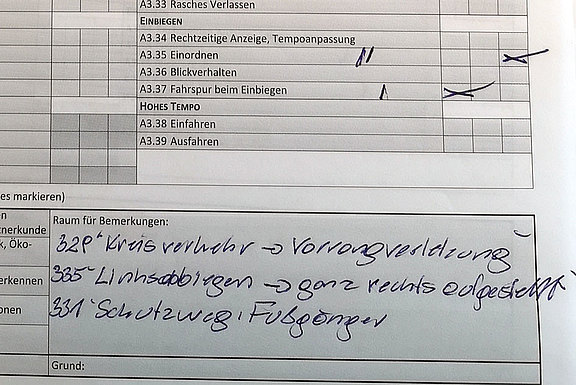 A3.33 Rasches Verlassen
EINBIEGEN
A3.34 Rechtzeitige Anzeige, Tempoanpassung
A3.35 Einordnen
A3.36 Blickverhalten
A3.37 Fahrspur beim Einbiegen
HOHES TEMPO
A3.38 Einfahren
A3.39 Ausfahren
es markieren)
Raum für Bemerkungen:
nerkunde
k, Öko-
erkennen
onen
329" Kreisverkehr → Vorrangverletzung
335" Linksabbiegen → ganz rechts aufgestellt
331" Schutzweg: Fußgänger
Grund: